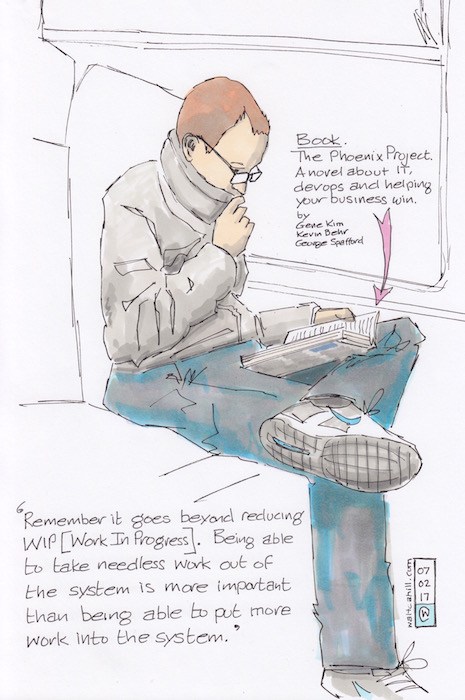 Book.
The Phoenix Project.
A novel about IT,
devops and helping
your business win.
by
Gene Kim
Kevin Behr
George Spafford
"Remember it goes beyond reducing
WIP [Work In Progress]. Being able
to take needless work out of
the system is more important
than being able to put more
work into the system."
waltcahill.com
07
02
17
W